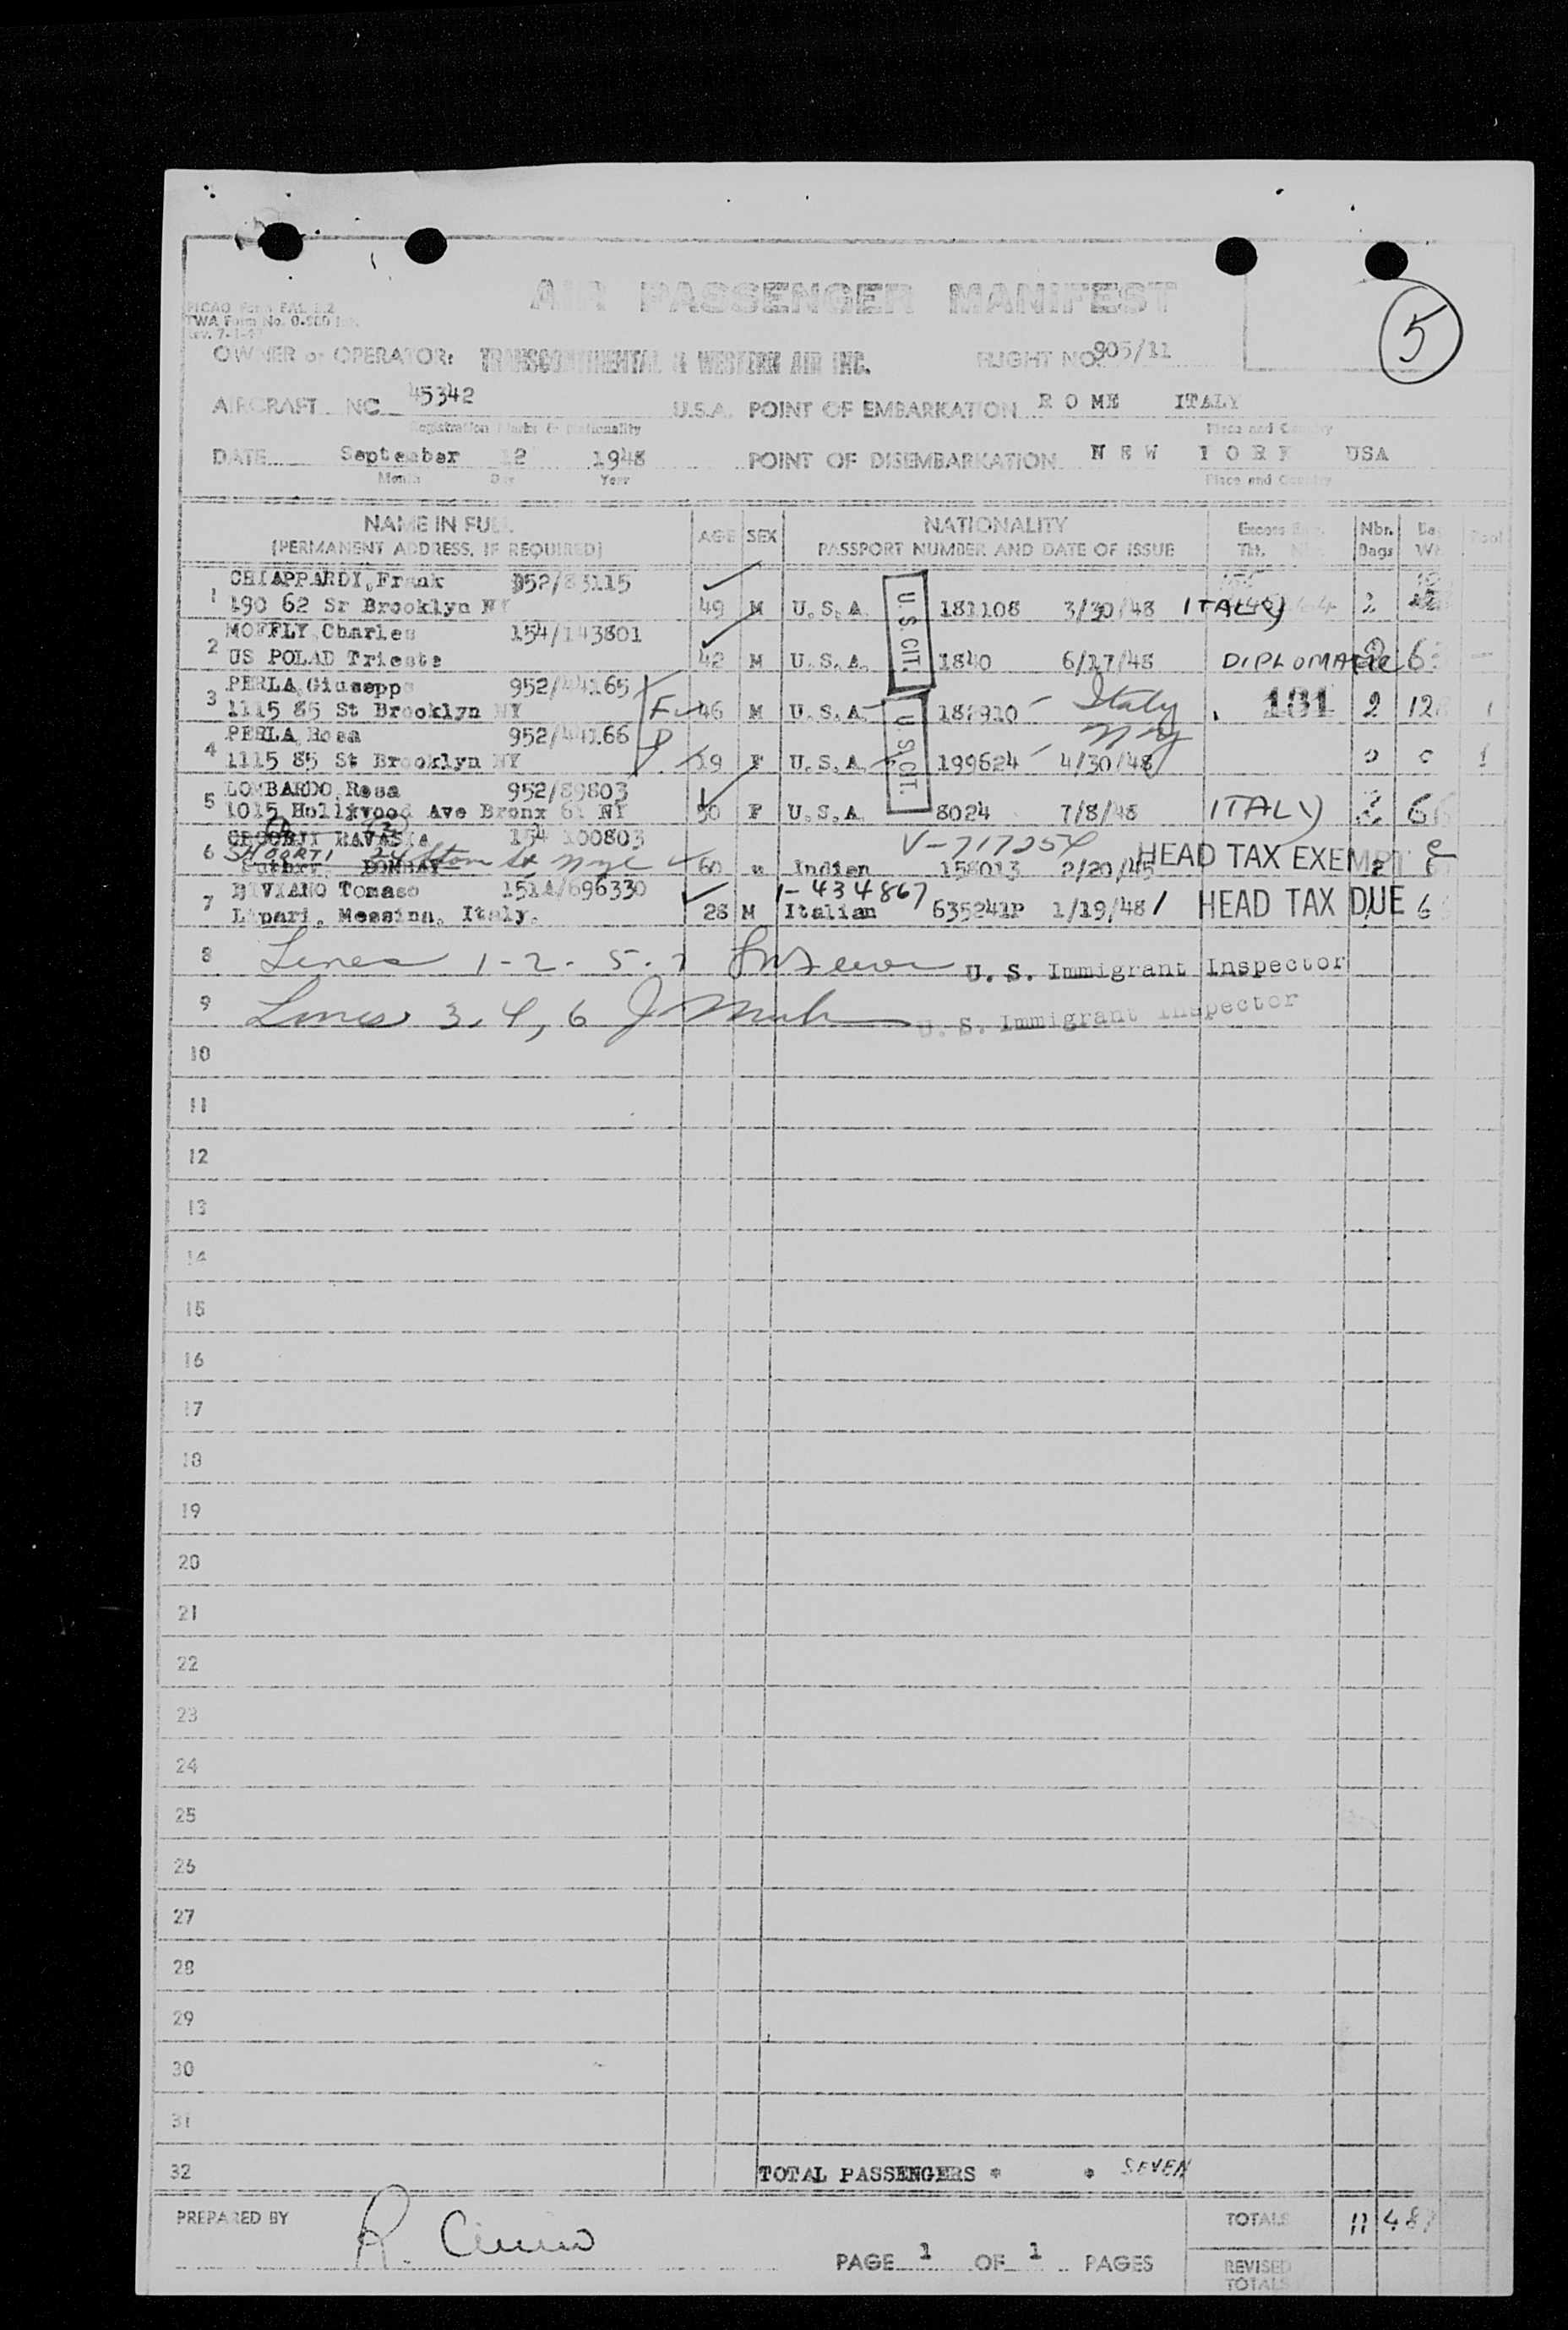 5
AIR PASSENGER MANIFEST
ICAO Form FAL 1.2
TWA Form No. 0-
OWNER or OPERATOR: TRANSCONTINENTAL & WESTERN AIR INC. FLIGHT NO. 905/11
AIRCRAFT NC 45342 U.S.A. POINT OF EMBARKATION ROME ITALY
Registration Marks & Nationality Place and Country
DATE September 12 1948 POINT OF DISEMBARKATION NEW YORK USA
Month Day Year Place and Country
NAME IN FULL AGE SEX NATIONALITY Excess Nbr.
(PERMANENT ADDRESS, IF REQUIRED) PASSPORT NUMBER AND DATE OF ISSUE Tkt. Bags Wt
CHIAPPARDI, Frank 952/83115
1 190 62 Sr Brooklyn NY 49 M U.S.A. 181108 3/30/48 ITALY 2
MOFFLY, Charles 154/143801
2 US POLAD Trieste 42 M U.S.A. 1840 6/17/48 DIPLOMATIC
U.S.CIT.
PERLA, Giuseppe 952/44165
3 1115 85 St Brooklyn NY F 46 M U.S.A. 182910 Italy 181 2 12
PERLA, Rosa 952/44166
4 1115 85 St Brooklyn NY 19 F U.S.A. 199624 4/30/48 0 0 1
U.S.CIT.
LOMBARDO, Rosa 952/89803
5 1015 Hollywood Ave Bronx 61 NY 50 F U.S.A. 8024 7/8/48 ITALY
RAVASIA 154 100803 V-717254
6 BOMBAY 60 m Indian 158013 2/20/45 HEAD TAX EXEMPT
BIVIANO Tomaso 151A/696330 1-434867
7 Lipari, Messina, Italy. 28 M Italian 635241P 1/19/48 HEAD TAX DUE 6
8 Lines 1-2-5-7 U. S. Immigrant Inspector
9 Lines 3, 4, 6 U. S. Immigrant Inspector
10
11
12
13
14
15
16
17
18
19
20
21
22
23
24
25
26
27
28
29
30
31
32 TOTAL PASSENGERS * * SEVEN
PREPARED BY R. TOTALS 11 48
PAGE 1 OF 1 PAGES REVISED
TOTALS